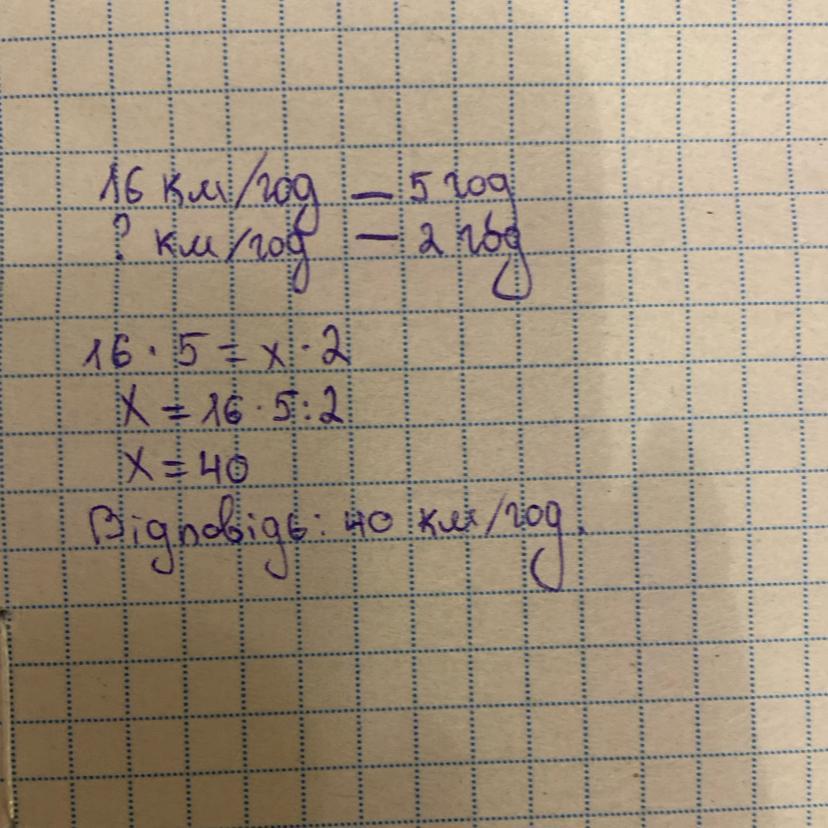 16 км/год — 5 год
? км/год — 2 год
16 · 5 = x · 2
x = 16 · 5 : 2
x = 40
Відповідь: 40 км/год.